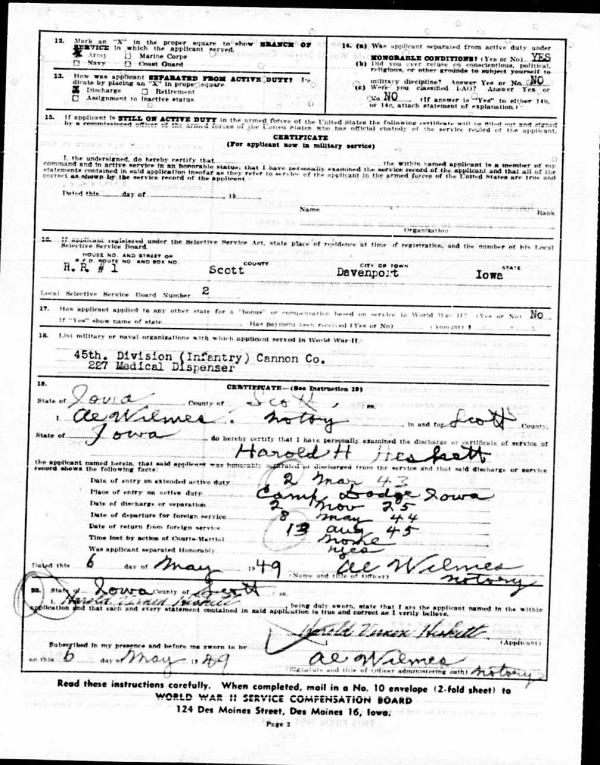 12. Mark an "X" in the proper square to show BRANCH OF
SERVICE in which the applicant served.
X Army □ Marine Corps
□ Navy □ Coast Guard
13. How was applicant SEPARATED FROM ACTIVE DUTY? In-
dicate by placing an "X" in proper square
X Discharge □ Retirement
□ Assignment to inactive status
14. (a) Was applicant separated from active duty under
HONORABLE CONDITIONS? (Yes or No) YES
(b) Did you ever refuse on conscientious, political,
religious, or other grounds to subject yourself to
military discipline? Answer Yes or No. NO
(c) Were you classified 4-AO? Answer Yes or
No NO (If answer is "Yes" to either 14b,
or 14c, attach statement of explanation.)
15. If applicant is STILL ON ACTIVE DUTY in the armed forces of the United States the following certificate will be filled out and signed
by a commissioned officer of the armed forces of the United States who has official custody of the service record of the applicant.
CERTIFICATE
(For applicant now in military service)
I, the undersigned, do hereby certify that the within named applicant is a member of my
command and in active service in an honorable status; that I have personally examined the service record of the applicant and that all of the
statements contained in said application insofar as they refer to service of the applicant in the armed forces of the United States are true and
correct as shown by the service record of the applicant.
Dated this day of , 19
Name Rank
Organization
16. If applicant registered under the Selective Service Act, state place of residence at time of registration, and the number of his Local
Selective Service Board.
HOUSE NO. AND STREET OR
R.F.D. ROUTE NO. AND BOX NO. COUNTY CITY OR TOWN STATE
R.R. # 1 Scott Davenport Iowa
Local Selective Service Board Number 2
17. Has applicant applied to any other state for a "bonus" or compensation based on service in World War II? (Yes or No) No
If "Yes" show name of state Has payment been received (Yes or No) (Amount) $
18. List military or naval organizations with which applicant served in World War II:
45th. Division (Infantry) Cannon Co.
227 Medical Dispenser
19. CERTIFICATE—(See Instruction 19)
State of Iowa County of Scott, ss.
I, Al Wilmes, Notory in and for Scott County,
State of Iowa do hereby certify that I have personally examined the discharge or certificate of service of
Harold H Heskett
the applicant named herein, that said applicant was honorably separated or discharged from the service and that said discharge or service
record shows the following facts:
Date of entry on extended active duty 2 Mar 43
Place of entry on active duty Camp Dodge Iowa
Date of discharge or separation 2 Nov 25
Date of departure for foreign service 8 May 44
Date of return from foreign service 13 Aug 45
Time lost by action of Courts-Martial None
Was applicant separated Honorably yes
Dated this 6 day of May 1949 Al Wilmes
(Name and title of Officer) Notory
20. State of Iowa County of Scott ss.
I, Harold Vernen Heskett being duly sworn, state that I am the applicant named in the within
application and that each and every statement contained in said application is true and correct as I verily believe.
Harold Vernen Heskett (Applicant)
Subscribed in my presence and before me sworn to be
on this 6 day of May 1949 Al Wilmes
(Signature and title of Officer administering oath) Notory
Read these instructions carefully. When completed, mail in a No. 10 envelope (2-fold sheet) to
WORLD WAR II SERVICE COMPENSATION BOARD
124 Des Moines Street, Des Moines 16, Iowa.
Page 2